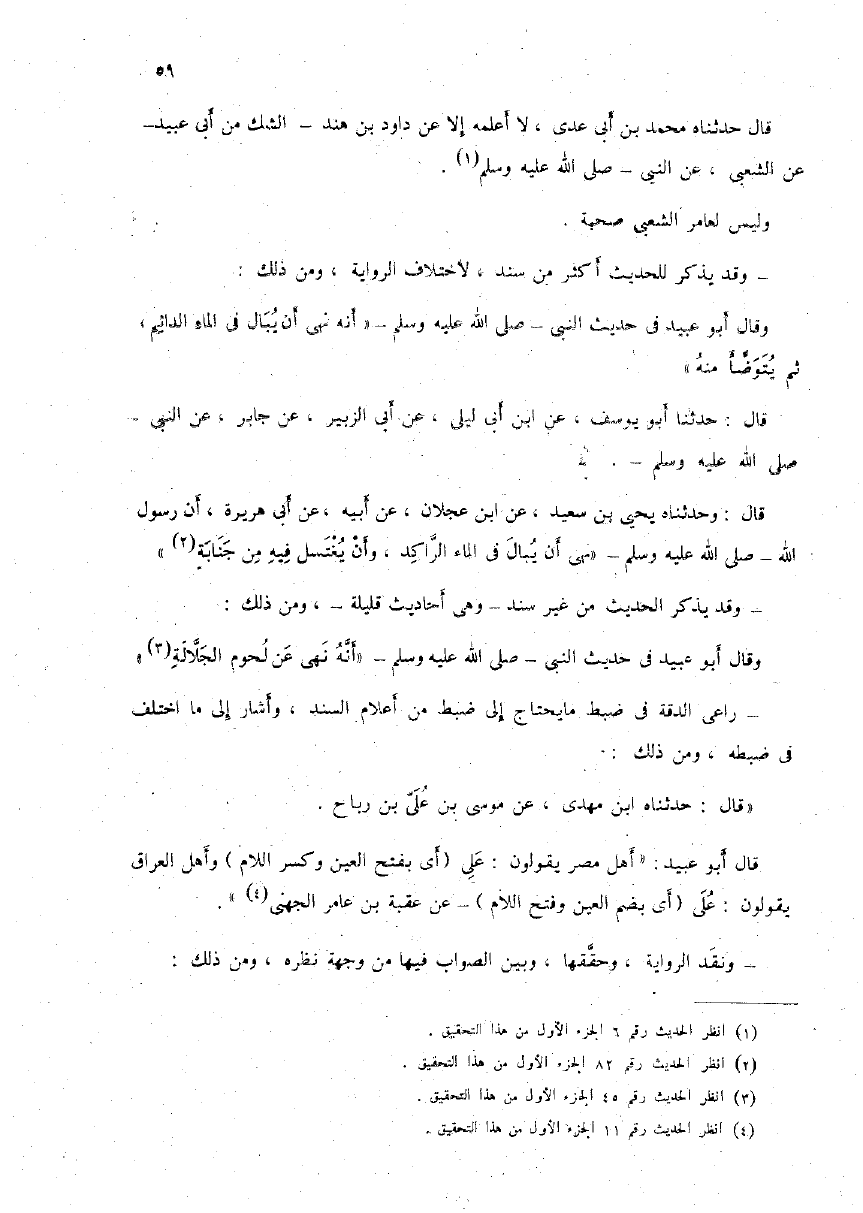 ٥٩
قال حدثناه محمد بن أبى عدى ، لا أعلمه إلا عن داود بن هند – الشك من أبى عبيد–
عن الشعبى ، عن النبى – صلى الله عليه وسلم(١) .
وليس لعامر الشعبى صحبة .
– وقد يذكر للحديث أكثر من سند ، لاختلاف الرواية ، ومن ذلك :
وقال أبو عبيد فى حديث النبى – صلى الله عليه وسلم –« أنه نهى أن يُبَال فى الماء الدائم ،
ثم يُتَوَضَّأَ منهُ »
قال : حدثنا أبو يوسف ، عن ابن أبى ليلى ، عن أبى الزبير ، عن جابر ، عن النبى –
صلى الله عليه وسلم – .
قال : وحدثناه يحيى بن سعيد ، عن ابن عجلان ، عن أبيه ، عن أبى هريرة ، أن رسول
الله – صلى الله عليه وسلم – «نهى أن يُبالَ فى الماء الرَّاكِد ، وأَنْ يُغْتَسل فِيهِ مِن جَنَابَةٍ(٢) »
– وقد يذكر الحديث من غير سند – وهى أحاديث قليلة – ، ومن ذلك :
وقال أبو عبيد فى حديث النبى – صلى الله عليه وسلم – «أَنَّهُ نَهى عَن لُحوم الجَلَّالَةِ(٣) »
– راعى الدقة فى ضبط مايحتاج إلى ضبط من أعلام السند ، وأشار إلى ما اختلف
فى ضبطه ، ومن ذلك :
«قال : حدثناه ابن مهدى ، عن موسى بن عُلَىّ بن رباح .
قال أبو عبيد : « أهل مصر يقولون : عَلِى ( أى بفتح العين وكسر اللام ) وأهل العراق
يقولون : عُلَى ( أى بضم العين وفتح اللام ) – عن عقبة بن عامر الجهنى(٤) » .
– ونقَد الرواية ، وحقَّقها ، وبين الصواب فيها من وجهة نظره ، ومن ذلك :
(١) انظر الحديث رقم ٦ الجزء الأول من هذا التحقيق .
(٢) انظر الحديث رقم ٨٢ الجزء الأول من هذا التحقيق .
(٣) انظر الحديث رقم ٤٥ الجزء الأول من هذا التحقيق .
(٤) انظر الحديث رقم ١١ الجزء الأول من هذا التحقيق .